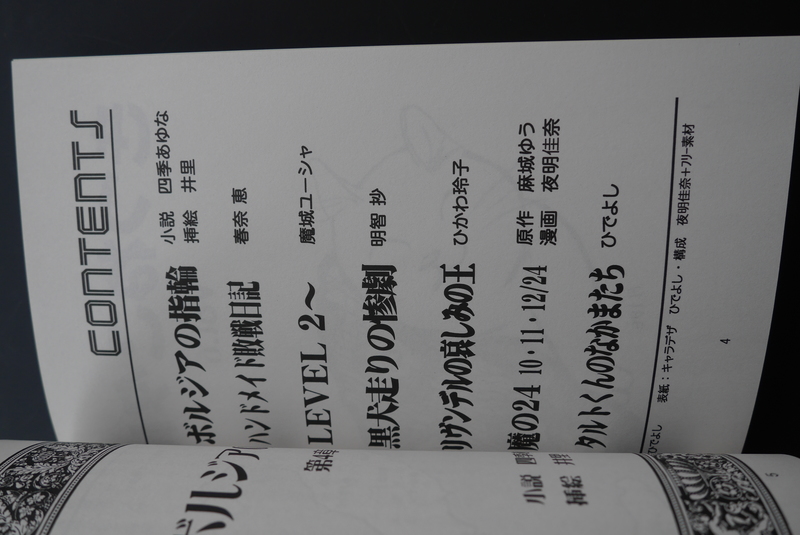 CONTENTS
ボルジアの指輪 小説 四季あゆな
挿絵 井里
ハンドメイド敗戦日記 春奈 恵
LEVEL 2～ 魔城ユーシャ
黒犬走りの惨劇 明智 抄
リヴンデルの哀しみの王 ひかわ玲子
魔の24 10・11・12/24 原作 麻城ゆう
漫画 夜明佳奈
タルトくんのなかまたち ひでよし
表紙：キャラデザ ひでよし・構成 夜明佳奈＋フリー素材
ひでよし
4
ボルジア
小説
挿絵
5